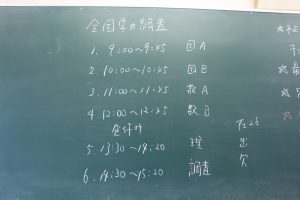 全国学力調査
1. 9:00〜9:45 国A
2. 10:00〜10:45 国B
3. 11:00〜11:45 数A
4. 12:00〜12:45 数B
5. 13:30〜14:20 理
6. 14:30〜15:20 調査
出
欠